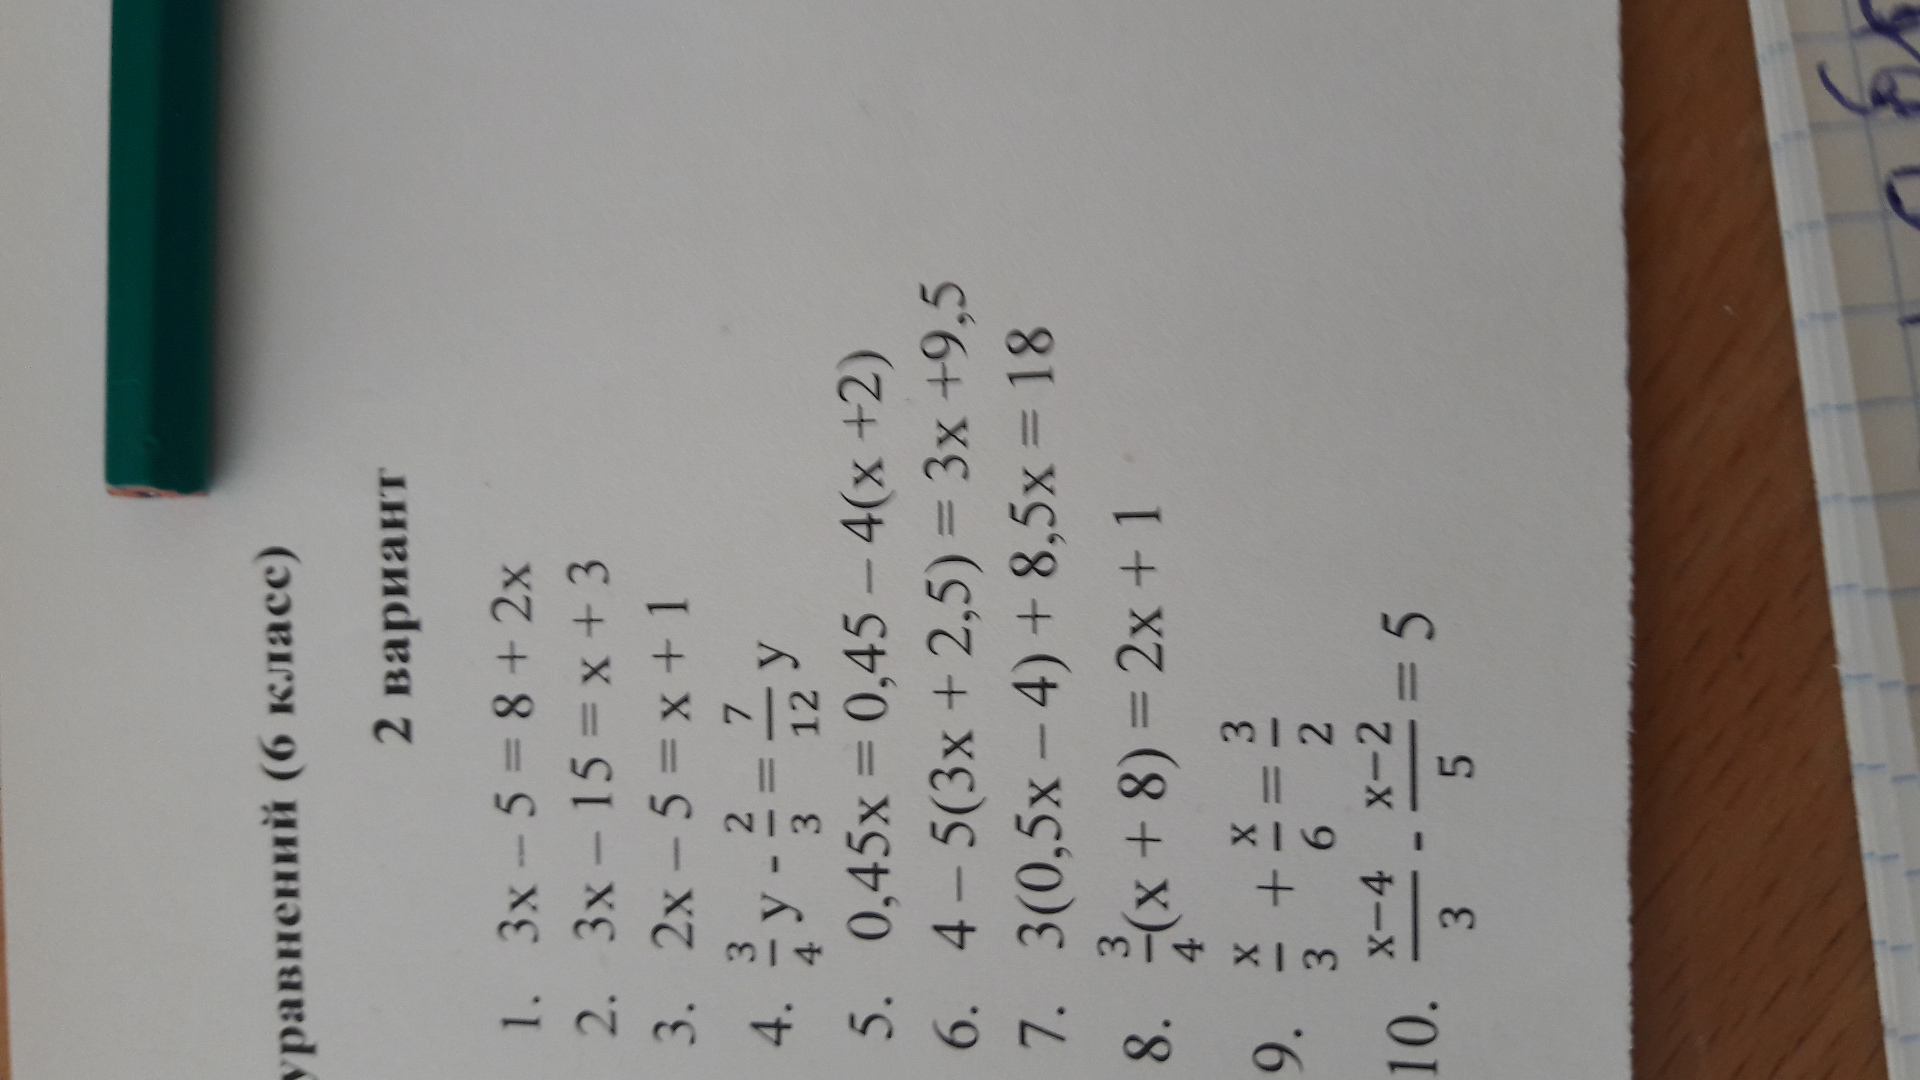 уравнений (6 класс)
2 вариант
1. 3x – 5 = 8 + 2x
2. 3x – 15 = x + 3
3. 2x – 5 = x + 1
4. 3/4 y - 2/3 = 7/12 y
5. 0,45x = 0,45 – 4(x +2)
6. 4 – 5(3x + 2,5) = 3x +9,5
7. 3(0,5x – 4) + 8,5x = 18
8. 3/4 (x + 8) = 2x + 1
9. x/3 + x/6 = 3/2
10. x–4/3 - x–2/5 = 5